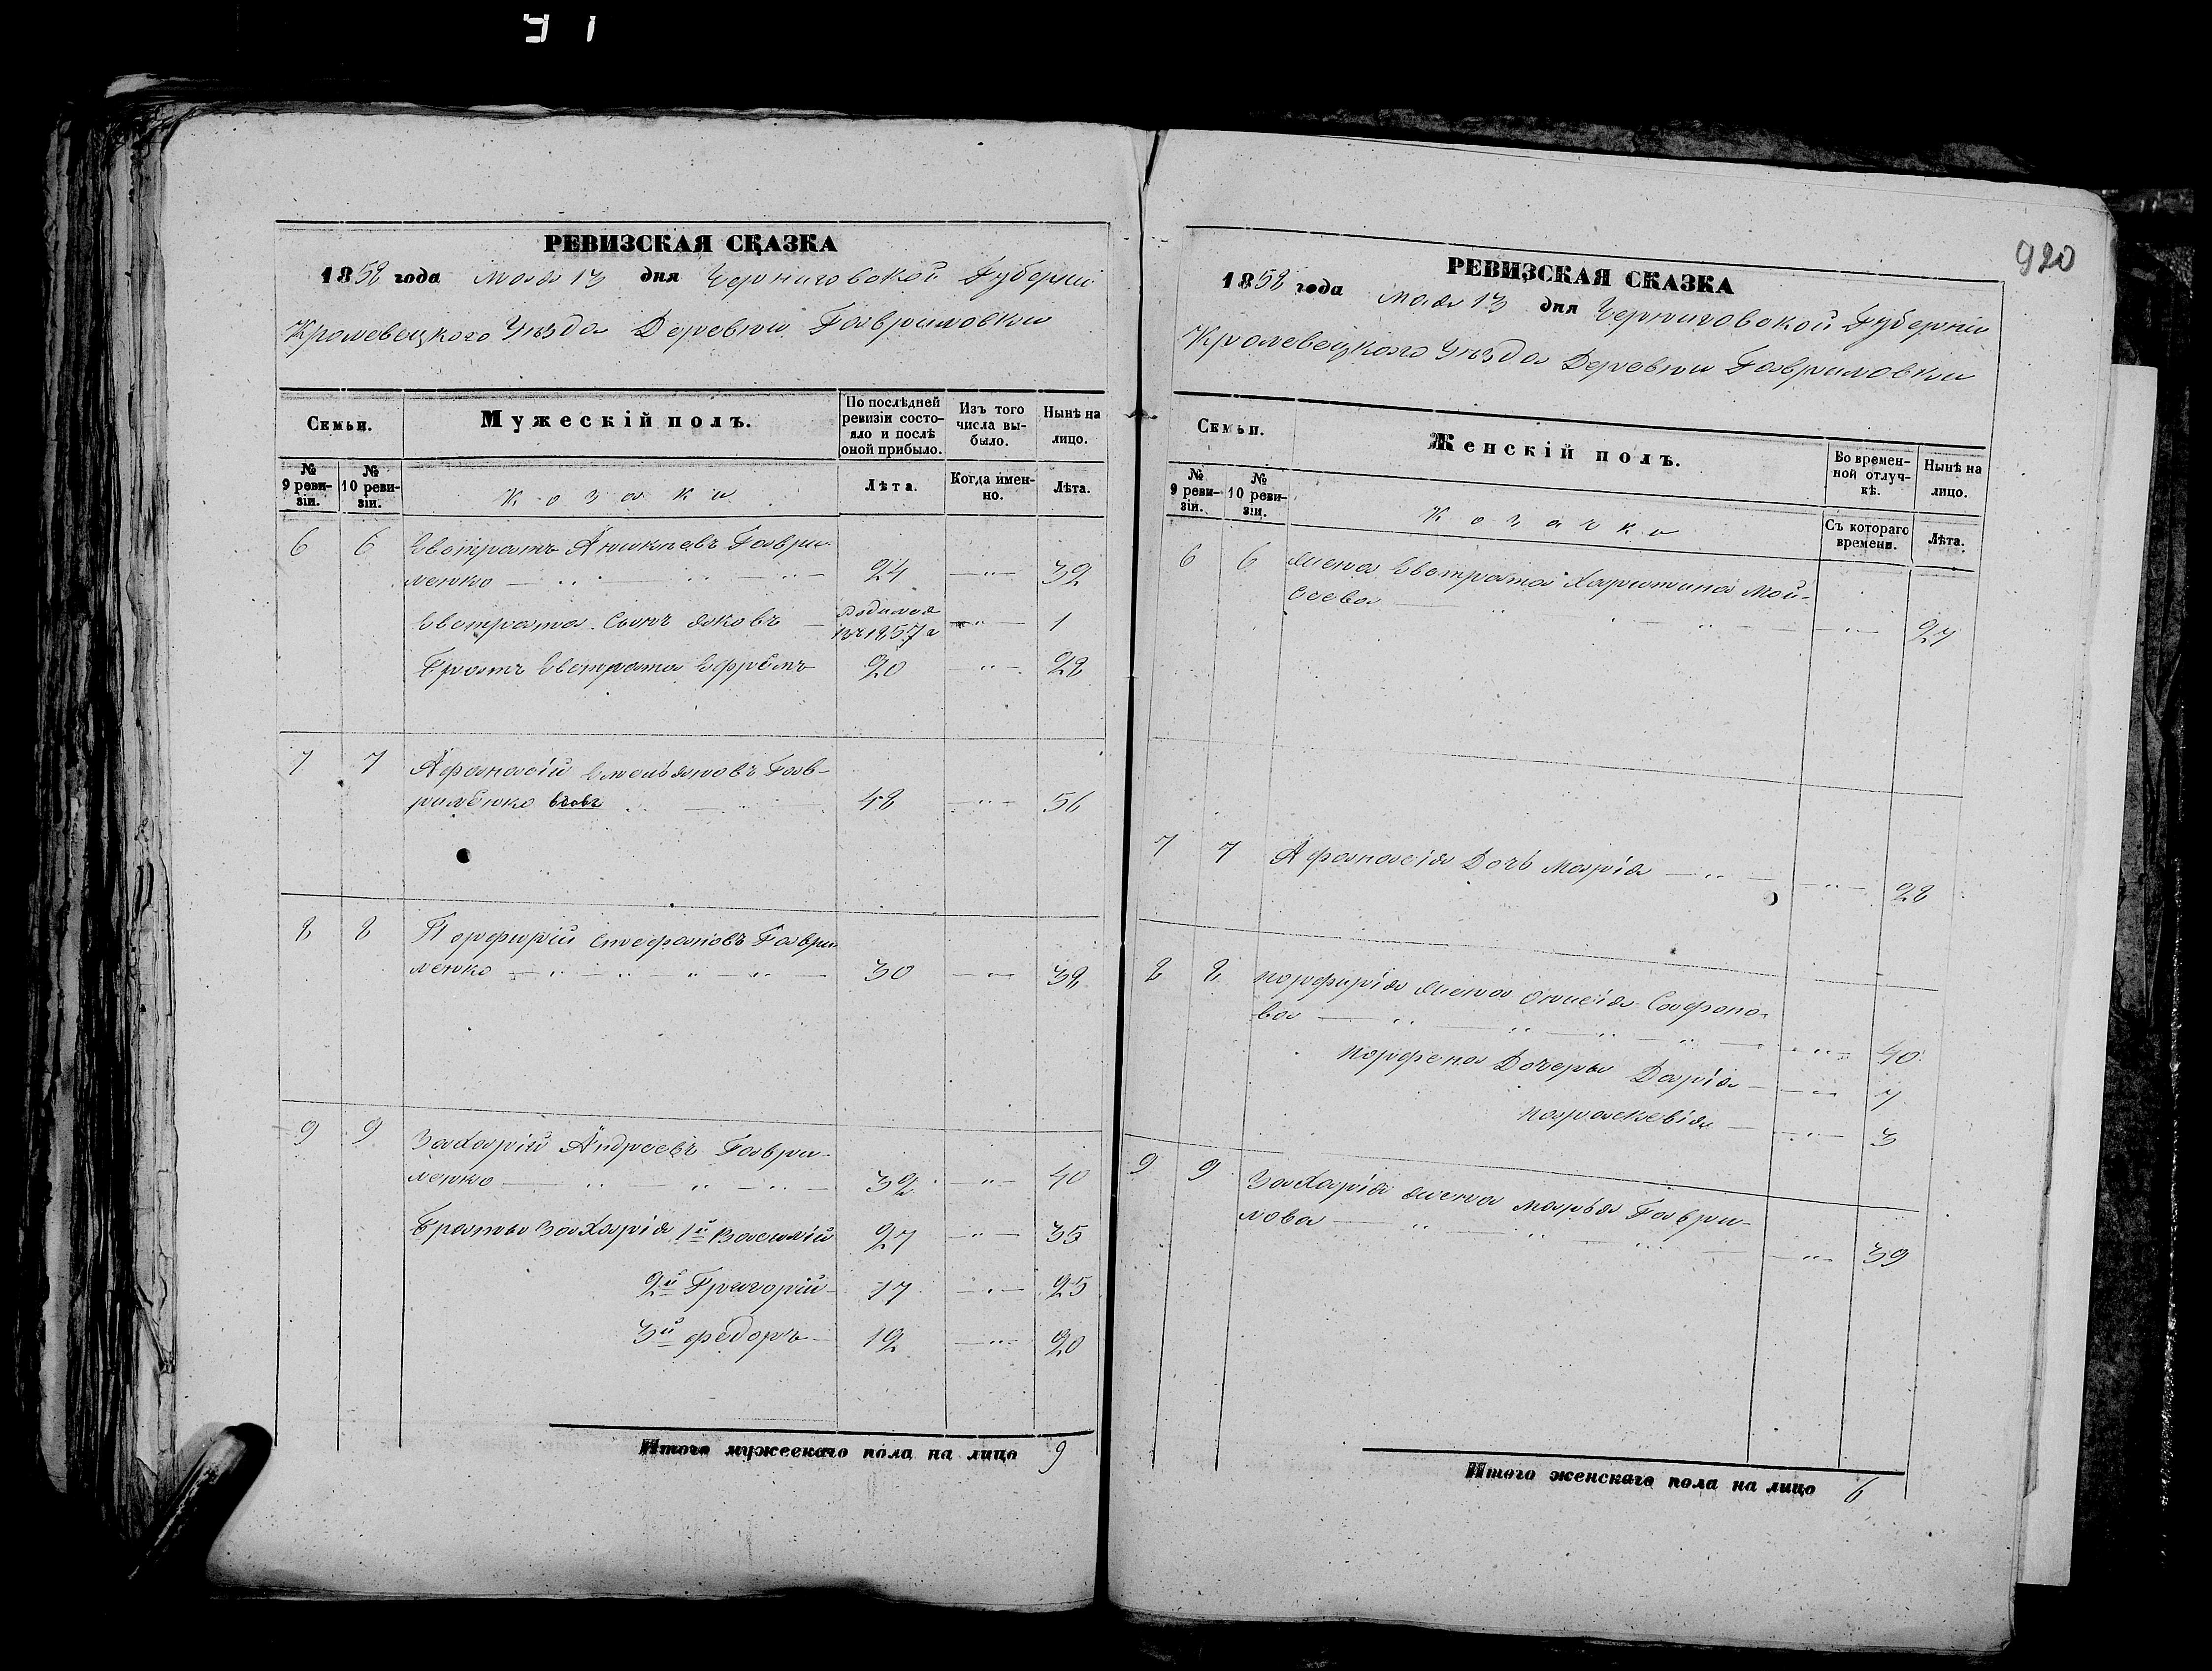 920
РЕВИЗСКАЯ СКАЗКА
1858 года мая 13 дня Черниговской Губерніи
Кролевецкого Уѣзда Деревни Гавриловки
Семьи.
Мужескій полъ.
По послѣдней ревизіи состояло и послѣ оной прибыло.
Изъ того числа выбыло.
Нынѣ на лицо.
№ 9 ревизіи.
№ 10 ревизіи.
Козаки
Лѣта.
Когда именно.
Лѣта.
6 6 Евстратъ Аникіевъ Гаври-
ленко 24 32
Евстрата Сынъ Яковъ родился въ 1857 г 1
Братъ Евстрата Ефремъ 20 28
7 7 Афанасій Емельяновъ Гав-
риленко вдовъ 48 56
8 8 Порфирій Стефановъ Гаври-
ленко 30 38
9 9 Захарій Андреевъ Гаври-
ленко 32 40
Братья Захарія 1й Василій 27 35
2й Григорій 17 25
3й Федоръ 12 20
Итого мужескаго пола на лицо 9
РЕВИЗСКАЯ СКАЗКА
1858 года мая 13 дня Черниговской Губерніи
Кролевецкого Уѣзда Деревни Гавриловки
Семьи.
Женскій полъ.
Во временной отлучкѣ.
Нынѣ на лицо.
№ 9 ревизіи.
№ 10 ревизіи.
Козачки
Съ котораго времени.
Лѣта.
6 6 Жена Евстрата Харитина Мой-
сеева 27
7 7 Афанасія Дочь Марія 28
8 8 Порфирія жена Онисія Сафоно-
ва 40
Дочеры Дарія 7
Параскевія 3
9 9 Захарія жена Марья Гаври-
лова 39
Итого женскаго пола на лицо 6